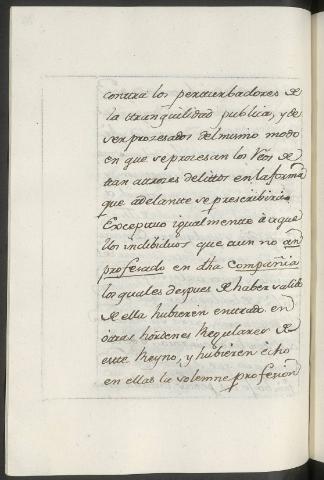 contra los perturbadores de
la tranquilidad publica, y de
ser prozesados del mismo modo
en que se prozesan los Reos de
tan atrozes delittos en la forma
que adelante se prescribirà.
Exceptuo igualmente à aque
llos indibiduos que aun no an
profesado en dha Compañia
los quales despues de haber salido
de ella hubieren entrado en
otras hórdenes Regulares de
este Reyno, y hubieren écho
en ellas la solemne profesion